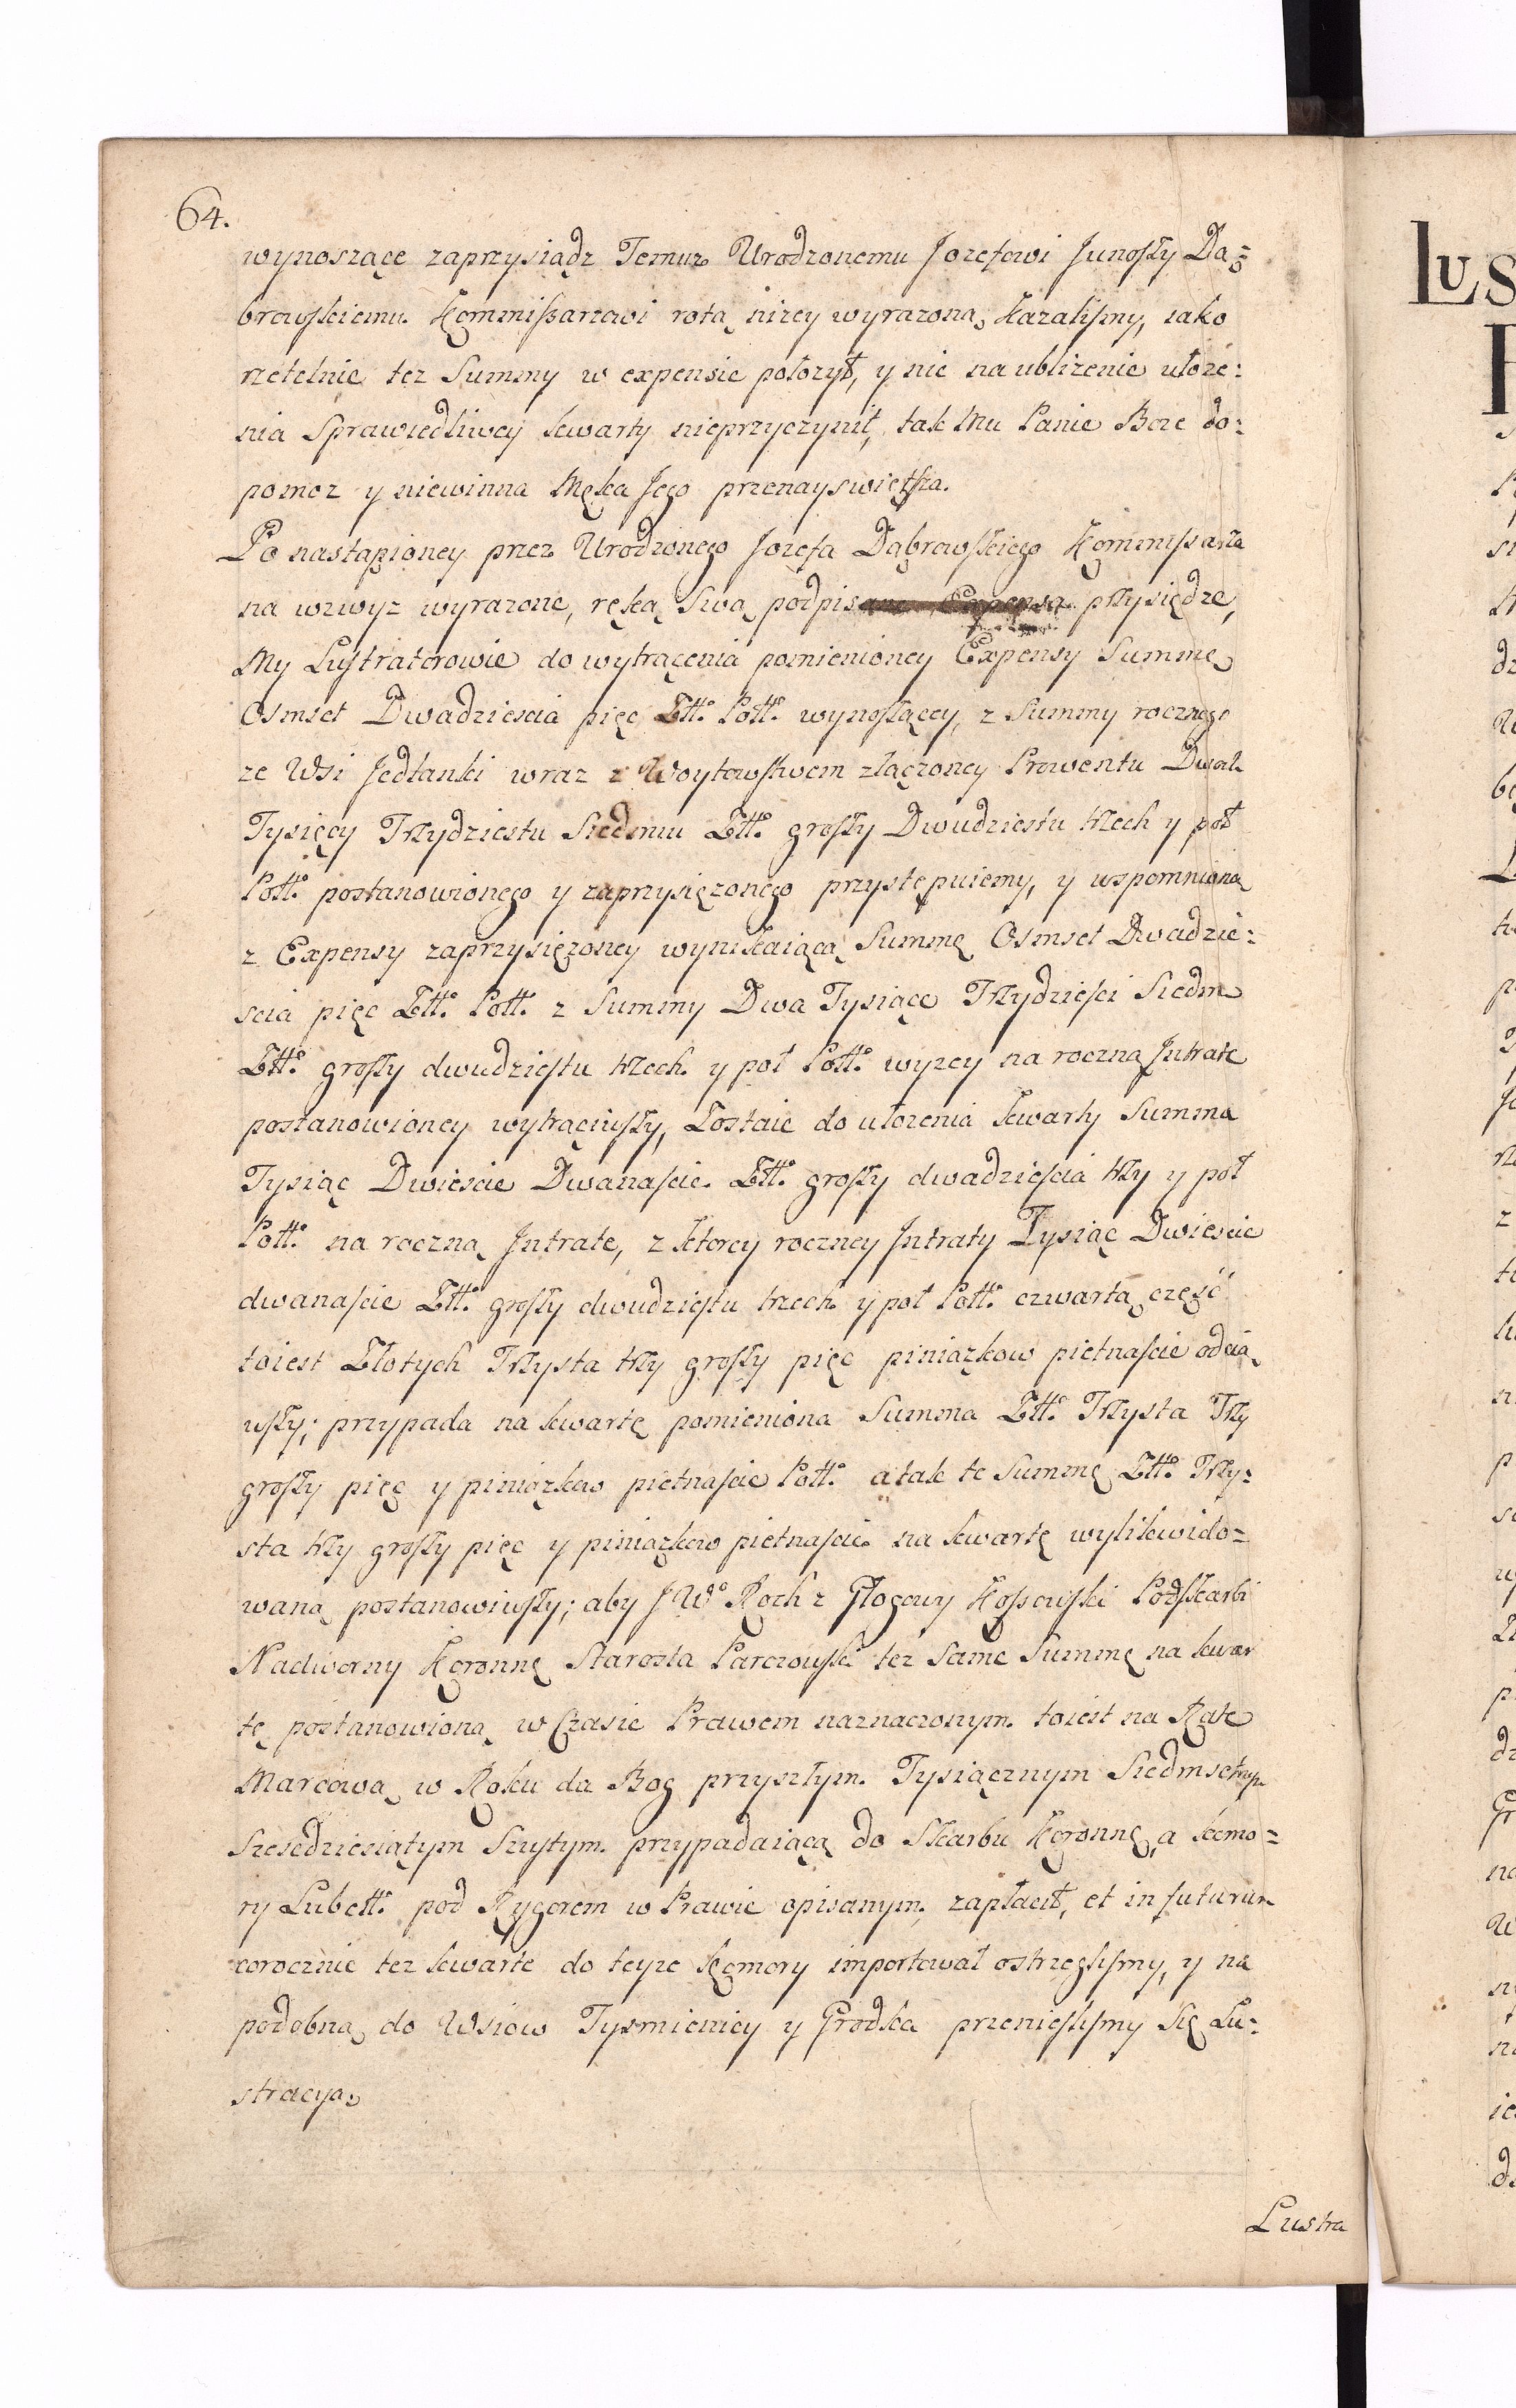 64.
wynoszące zaprzysiądz Temuz Urodzonemu Jozefowi Junoſzy Dą=
browſkiemu Kommiſsarzowi rotą nizey wyrazoną kazaliſmy, iako
rzetelnie tez Summy w expensie połozył, y nic na ublizenie ułoze=
nia Sprawiedliwey kwarty nieprzyczynił, tak Mu Panie Boze do=
pomoz y niewinna Męka Jego przenayswiętſza.
Po nastąpioney przez Urodzonego Jozefa Dąbrowſkiego Kommiſsarza
na wzwyz wyrazone, ręką Swą podpisane Expensa przysiędze,
My Luſtratorowie do wytrącenia pomienioney Expensy Summę
Osmset Dwadziescia pięc Złł. Poll. wynoſzącey, z Summy rocznego
ze Wsi Jedlanki wraz z Woytowſtwem złączoney Prowentu Dwoch
Tysięcy Trzydziestu Siedmiu Złł. groſzy Dwudziestu trzech y poł
Poll. postanowionego y zaprzysięzonego przystępuiemy, y wspomnioną
z Expensy zaprzysięzoney wynikaiącą Summę Osmset Dwadzie=
scia pięc Złł. Poll. z Summy Dwa Tysiące Trzydzieſci Siedm
Złł. groſzy dwudzieſtu trzech y poł Poll. wyzey na roczną Jntratę
postanowioney wytrąciwſzy, Zostaie do ułozenia kwarty Summa
Tysiąc Dwiescie Dwanaſcie Złł. groſzy dwadzieſcia trzy y poł
Poll. na roczną Jntratę, z ktorey roczney Jntraty Tysiąc Dwiescie
dwanaſcie Złł. groſzy dwudzieſtu trzech y poł Poll. czwartą częsć
toiest Złotych Trzysta trzy groſzy pięc piniązkow piętnaſcie odcią
wſzy; przypada na kwartę pomieniona Summa Złł. Trzysta Trzy
groſzy pięc y piniązkow piętnaſcie Poll. a tak te Summę Złł. Trzy=
sta trzy groſzy pięc y piniązkow piętnaſcie na kwartę wylikwido=
waną postanowiwſzy; aby JW. Roch z Głogowy Koſsowſki Podſkarbi
Nadworny Koronny Starosta Parczowſki tez Same Summę na kwar
tę postanowioną w Czasie Prawem naznaczonym toiest na Ratę
Marcową w Roku da Bog przyszłym Tysiącznym Siedmsetnym
Szescdziesiątym Szuſtym przypadaiącą do Skarbu Koronnego, a komo=
ry Lubell. pod Rygorem w Prawie opisanym, zapłacił, et in futurum
corocznie tez kwartę do teyze Komory importował ostrzegliſmy, y na
podobną do Wsiow Tysmienicy y Grodka przenieſliſmy Się Lu=
stracyą.
Lustra